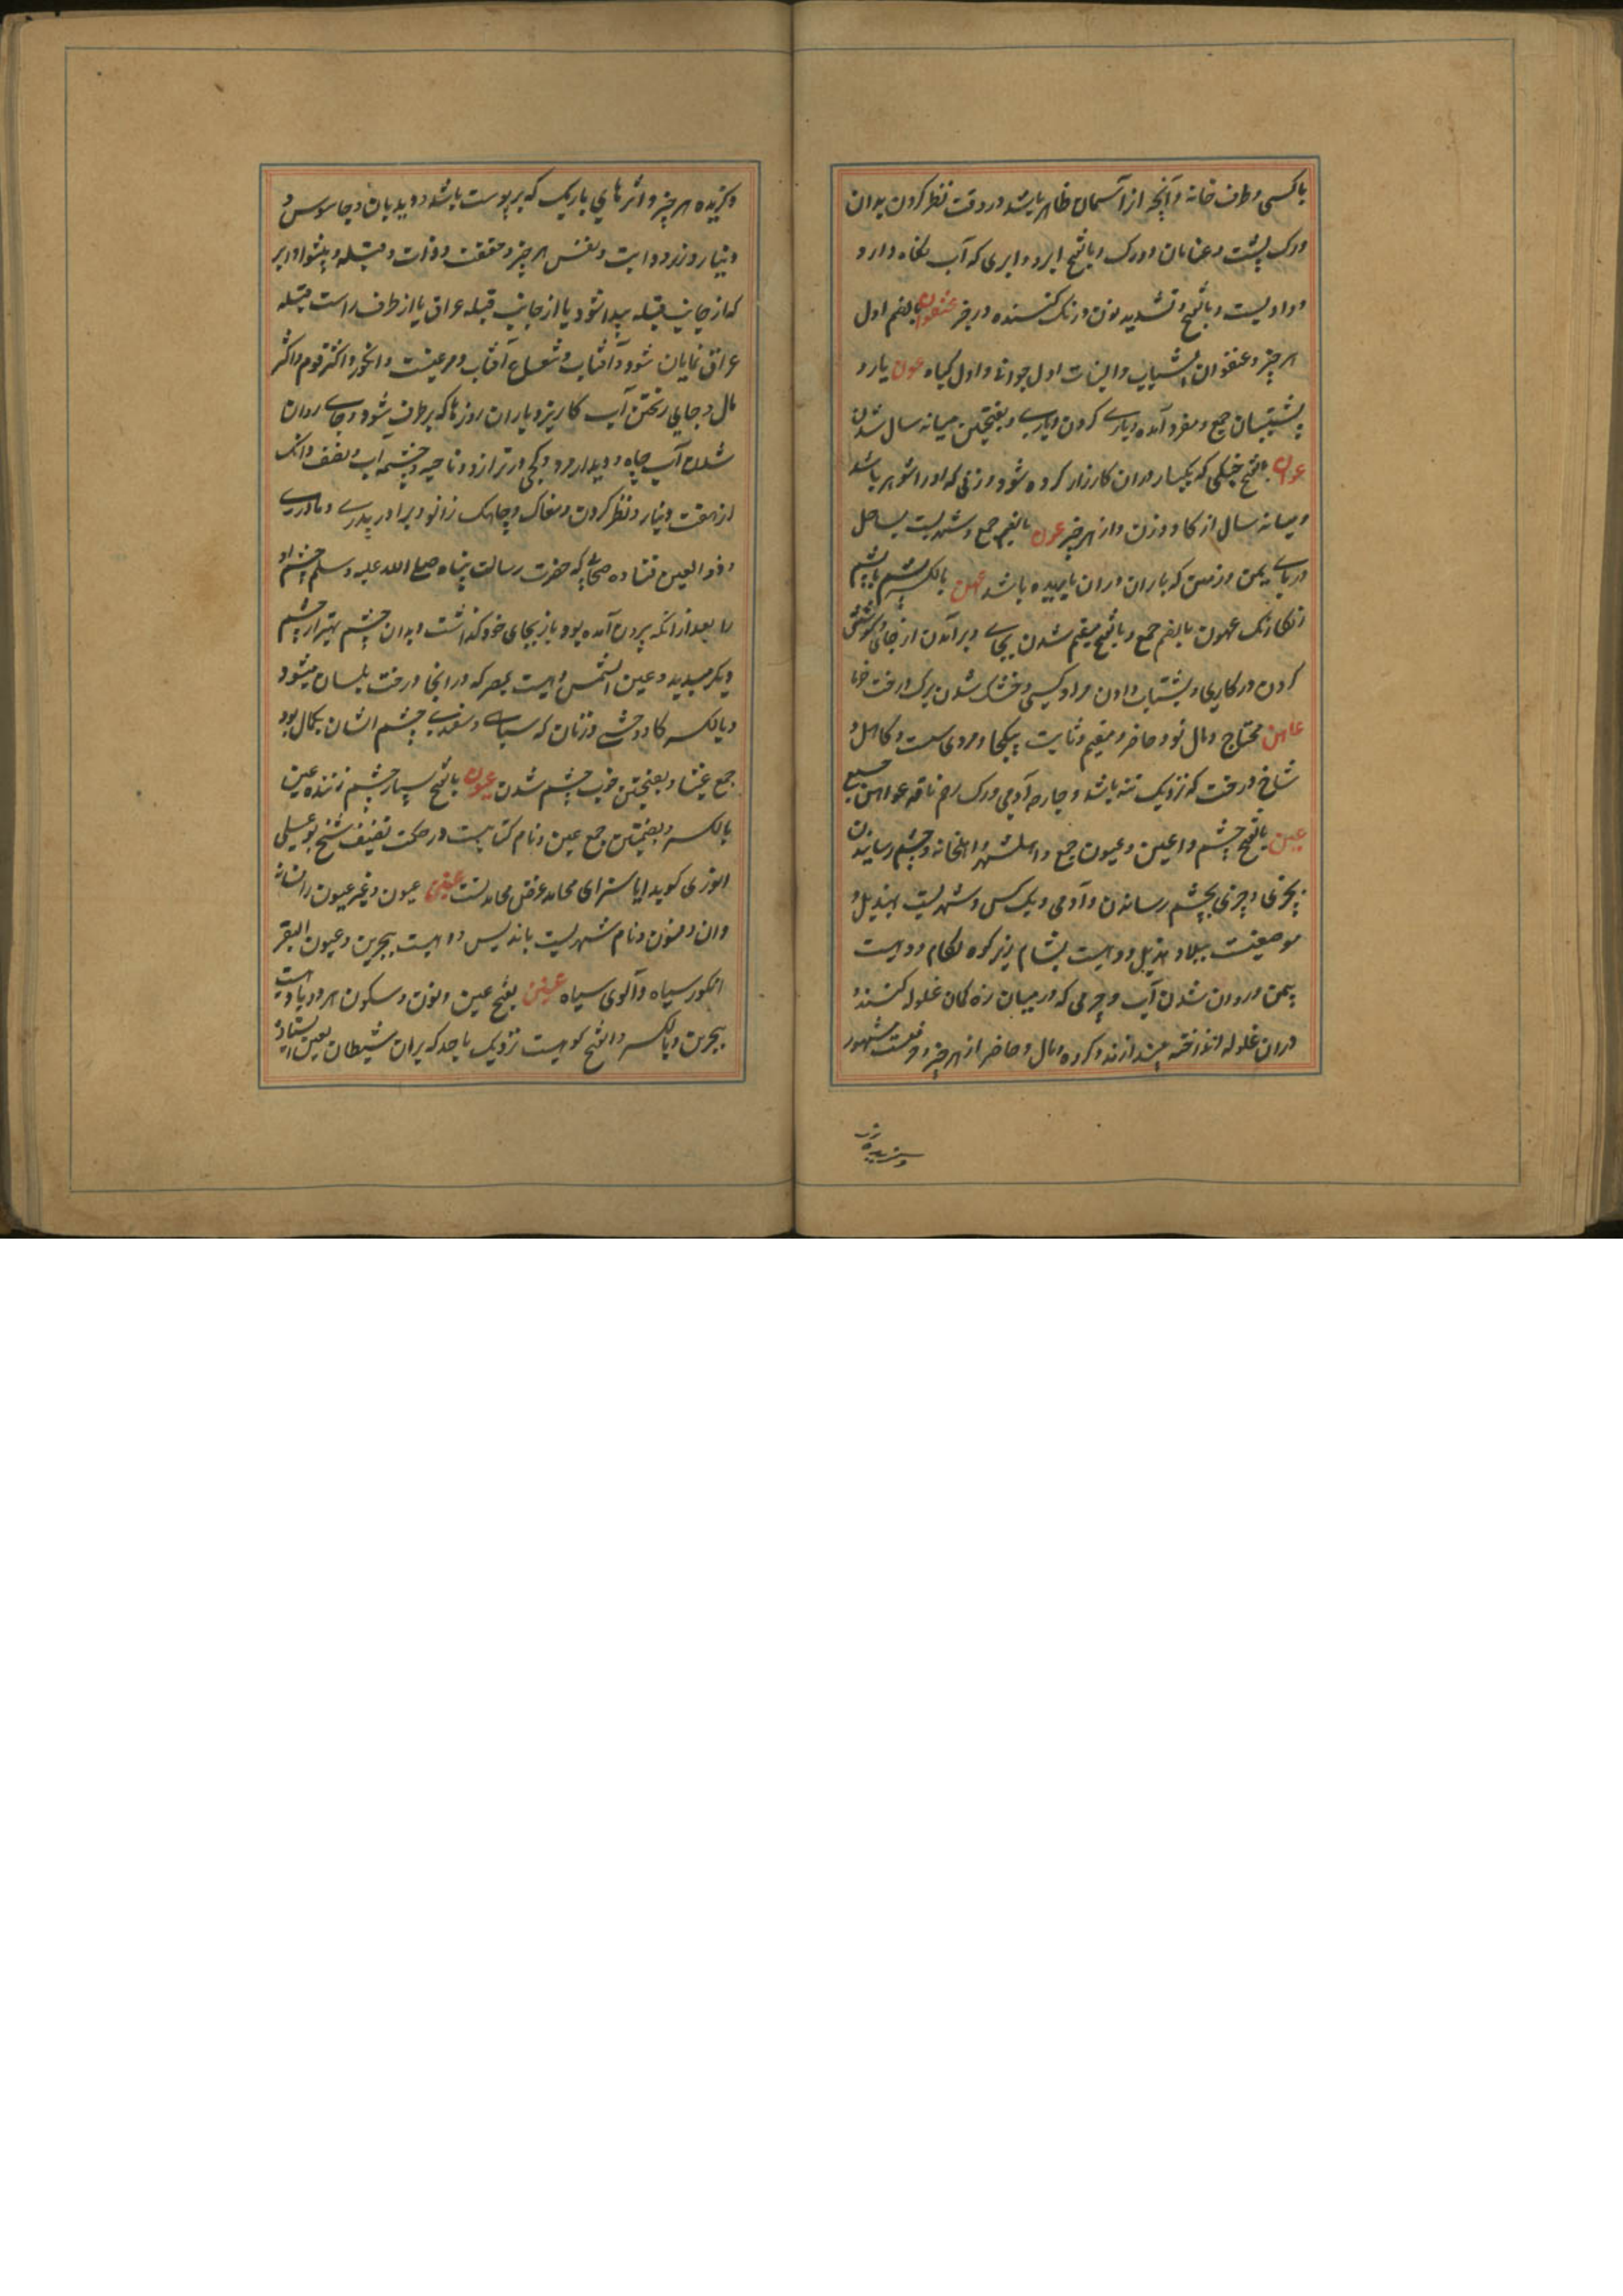 با کسی و طرف خانه و آنچه از آسمان ظاهر باشد در وقت نظر کردن بدان
و رک پشت و عنانان دو رک و بالفتح ابر و ابری که آب نگاه دارد
و وادیست و بالفتح و تشدید نون درنگ کننده در چیز عنفوان بالضم اول
هر چیز و عنفوان الشباب والنبات اول جوانی و اول گیاه عون یار و
پشتیبان جمع و مفرد آمده و یاری کردن و یاری و بفتحتین میانه سال شدن
عوان بالفتح جنگی که یکبار در ان کارزار کرده شود و زنی که او را شوهر باشد
و میانه سال از گاو و زن و از هر چیز عون بالضم جمع و شهریست بساحل
دریای یمن و زمین که باران در ان باریده باشد عهن بالکسر پشم یا پشم
رنگارنگ عهون بالضم جمع و بالفتح مقیم شدن بجای و برآمدن از جای و کوشش
کردن در کاری و بشتاب دادن مراد کسی و خشک شدن برگ درخت خرما
عاهن محتاج و مال نو و حاضر و مقیم و ثابت بیکجا و مردی سست و کاهل و
شاخ درخت که نزدیک تنه باشد و جارحه آدمی و رک رحم ناقه عواهن جمع
عین بالفتح چشم و اعین و عیون جمع و اهل شهر و اهل خانه و چشم رسانیدن
بچیزی و چیزی بچشم رساندن و آدمی و یک کس و شهریست بهذیل و
موضعیست ببلاد هذیل و دهیست بشام زیر کوه لکام و دهیست
بیمن و روان شدن آب و چرمی که در میان زه کمان غلوله کنند و
در ان غلوله انداخته میندازند و کرده و مال و حاضر از هر چیز و حرفیست مشهور
و گزیده هر
و گزیده هر چیز و اثرهای باریک که بر پوست باشد و دیدبان و جاسوس و
دینار و زر و ذات و نفس هر چیز و حقیقت و ذات و قبله و پیشوا و ابر
که از جانب قبله پیدا شود یا از جانب قبله عراق یا از طرف راست قبله
عراق نمایان شود و آفتاب و شعاع آفتاب و مرغیست و انجیر و اکثر قوم و اکثر
مال و جای رختن آب کاریز و باران روزها که برطرف نشود و جای روان
شدن آب چاه و دیدار مرد و کجی در ترازو و ناحیه و چشمه آب و نصف دانگ
از هفت دینار و نظر کردن و مغاک و چاهک زانو و برادر پدری و مادری
و ذو العین قتاده صحابی که حضرت رسالت پناه صلی الله علیه و سلم چشم او
را بعد از انکه برون آمده بود باز بجای خود گذاشت و بدان چشم بهتر از چشم
دیگر میدید و عین الشمس دهیست بمصر که در انجا درخت بلسان میشود
و بالکسر گاو وحشی و زنان که سیاهی و سفیدی چشم ایشان بکمال بود
جمع عیناء و بفتحتین خوب چشم شدن عیون بالفتح بسیار چشم زننده عین
بالکسر و بضمتین جمع عین و نام کتابیست در حکمت تصنیف شیخ بوعلی
انوری گوید
وان و فنون و نام شهریست باندلس و دهیست ببحرین و عیون البقر
انگور سیاه و آلوی سیاه عینین بفتح عین و نون و سکون هر دو یا دهیست
ببحرین و بالکسر و الفتح کوهیست نزدیک باحد که بران شیطان لعین ایستاده